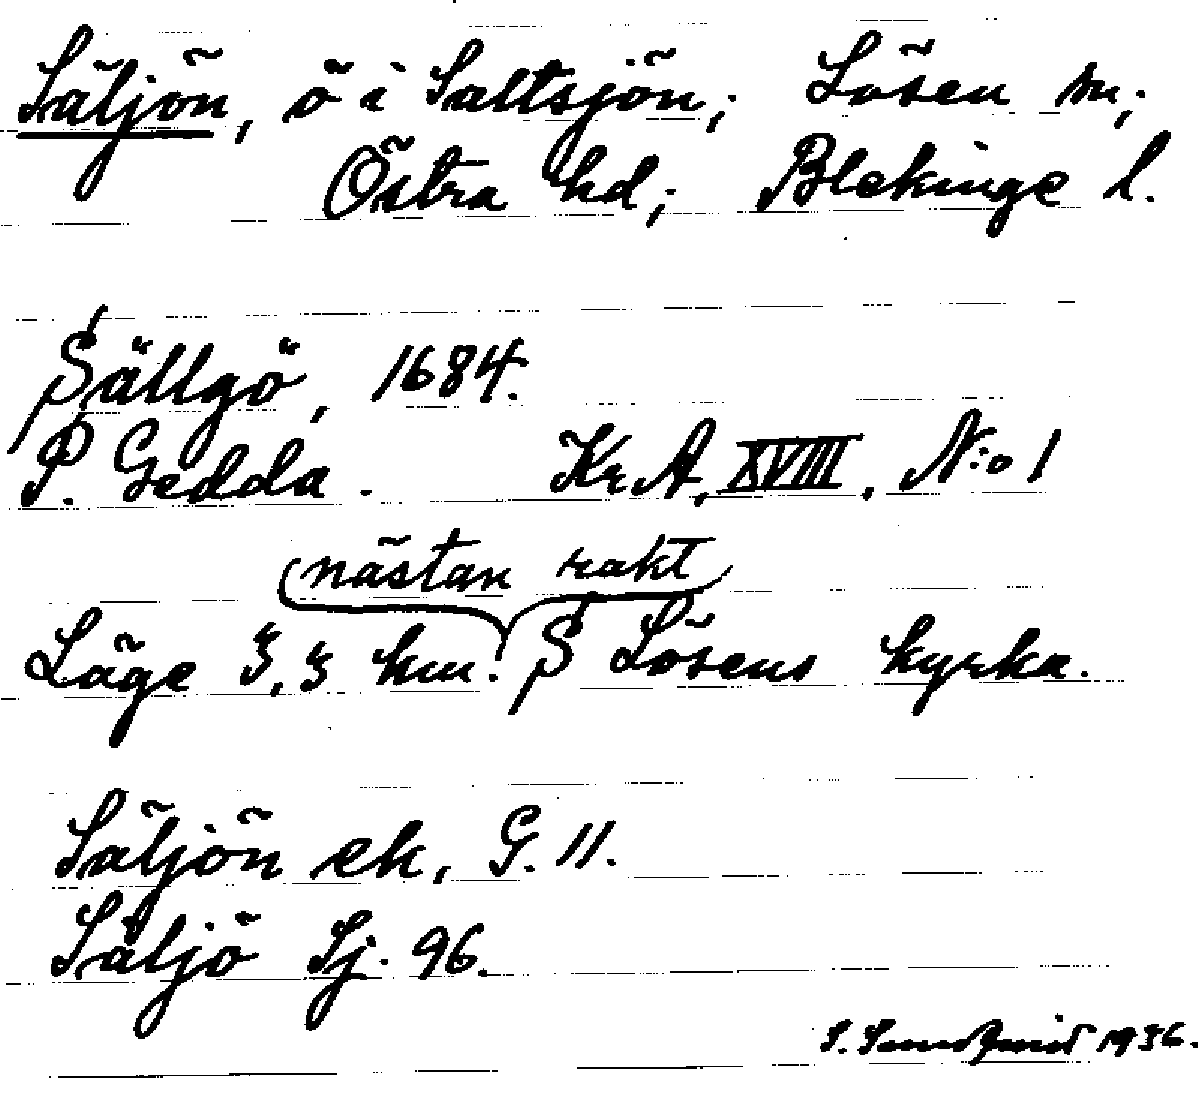 Säljön, ö i Saltsjön; Lösen sn;
Östra hd; Blekinge l.
Sällgö, 1684.
P. Gedda. Kr A, XVIII, N:o 1
(nästan rakt)
Läge 3,3 km. S Lösens kyrka.
Säljön ek, G. 11.
Säljö Sj. 96.
1936.